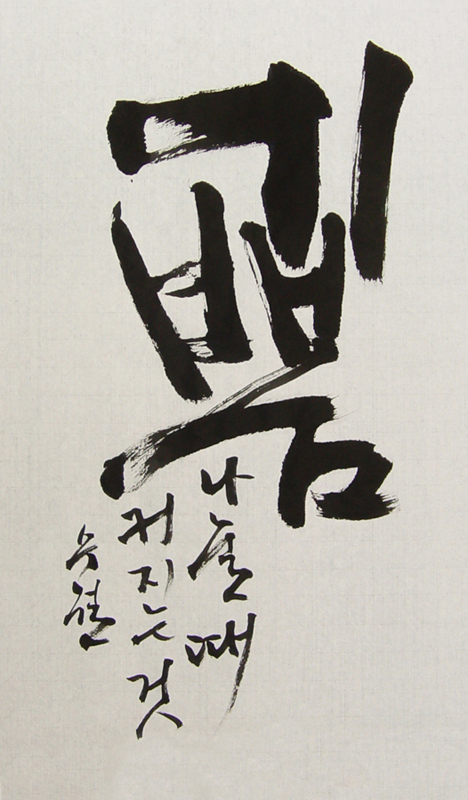 기쁨
나눌 때
커지는 것